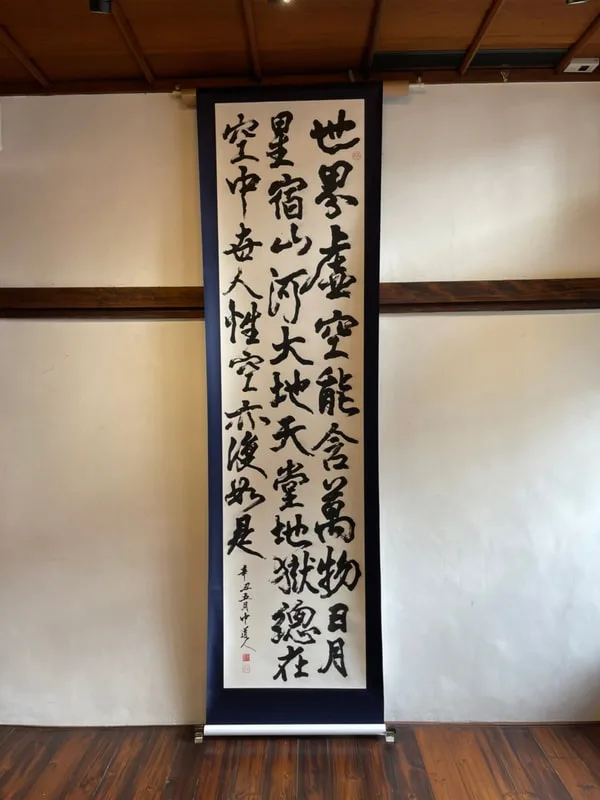 世界虛空能含萬物日月
星宿山河大地天堂地獄總在
空中世人性空亦復如是
辛丑五月中道人